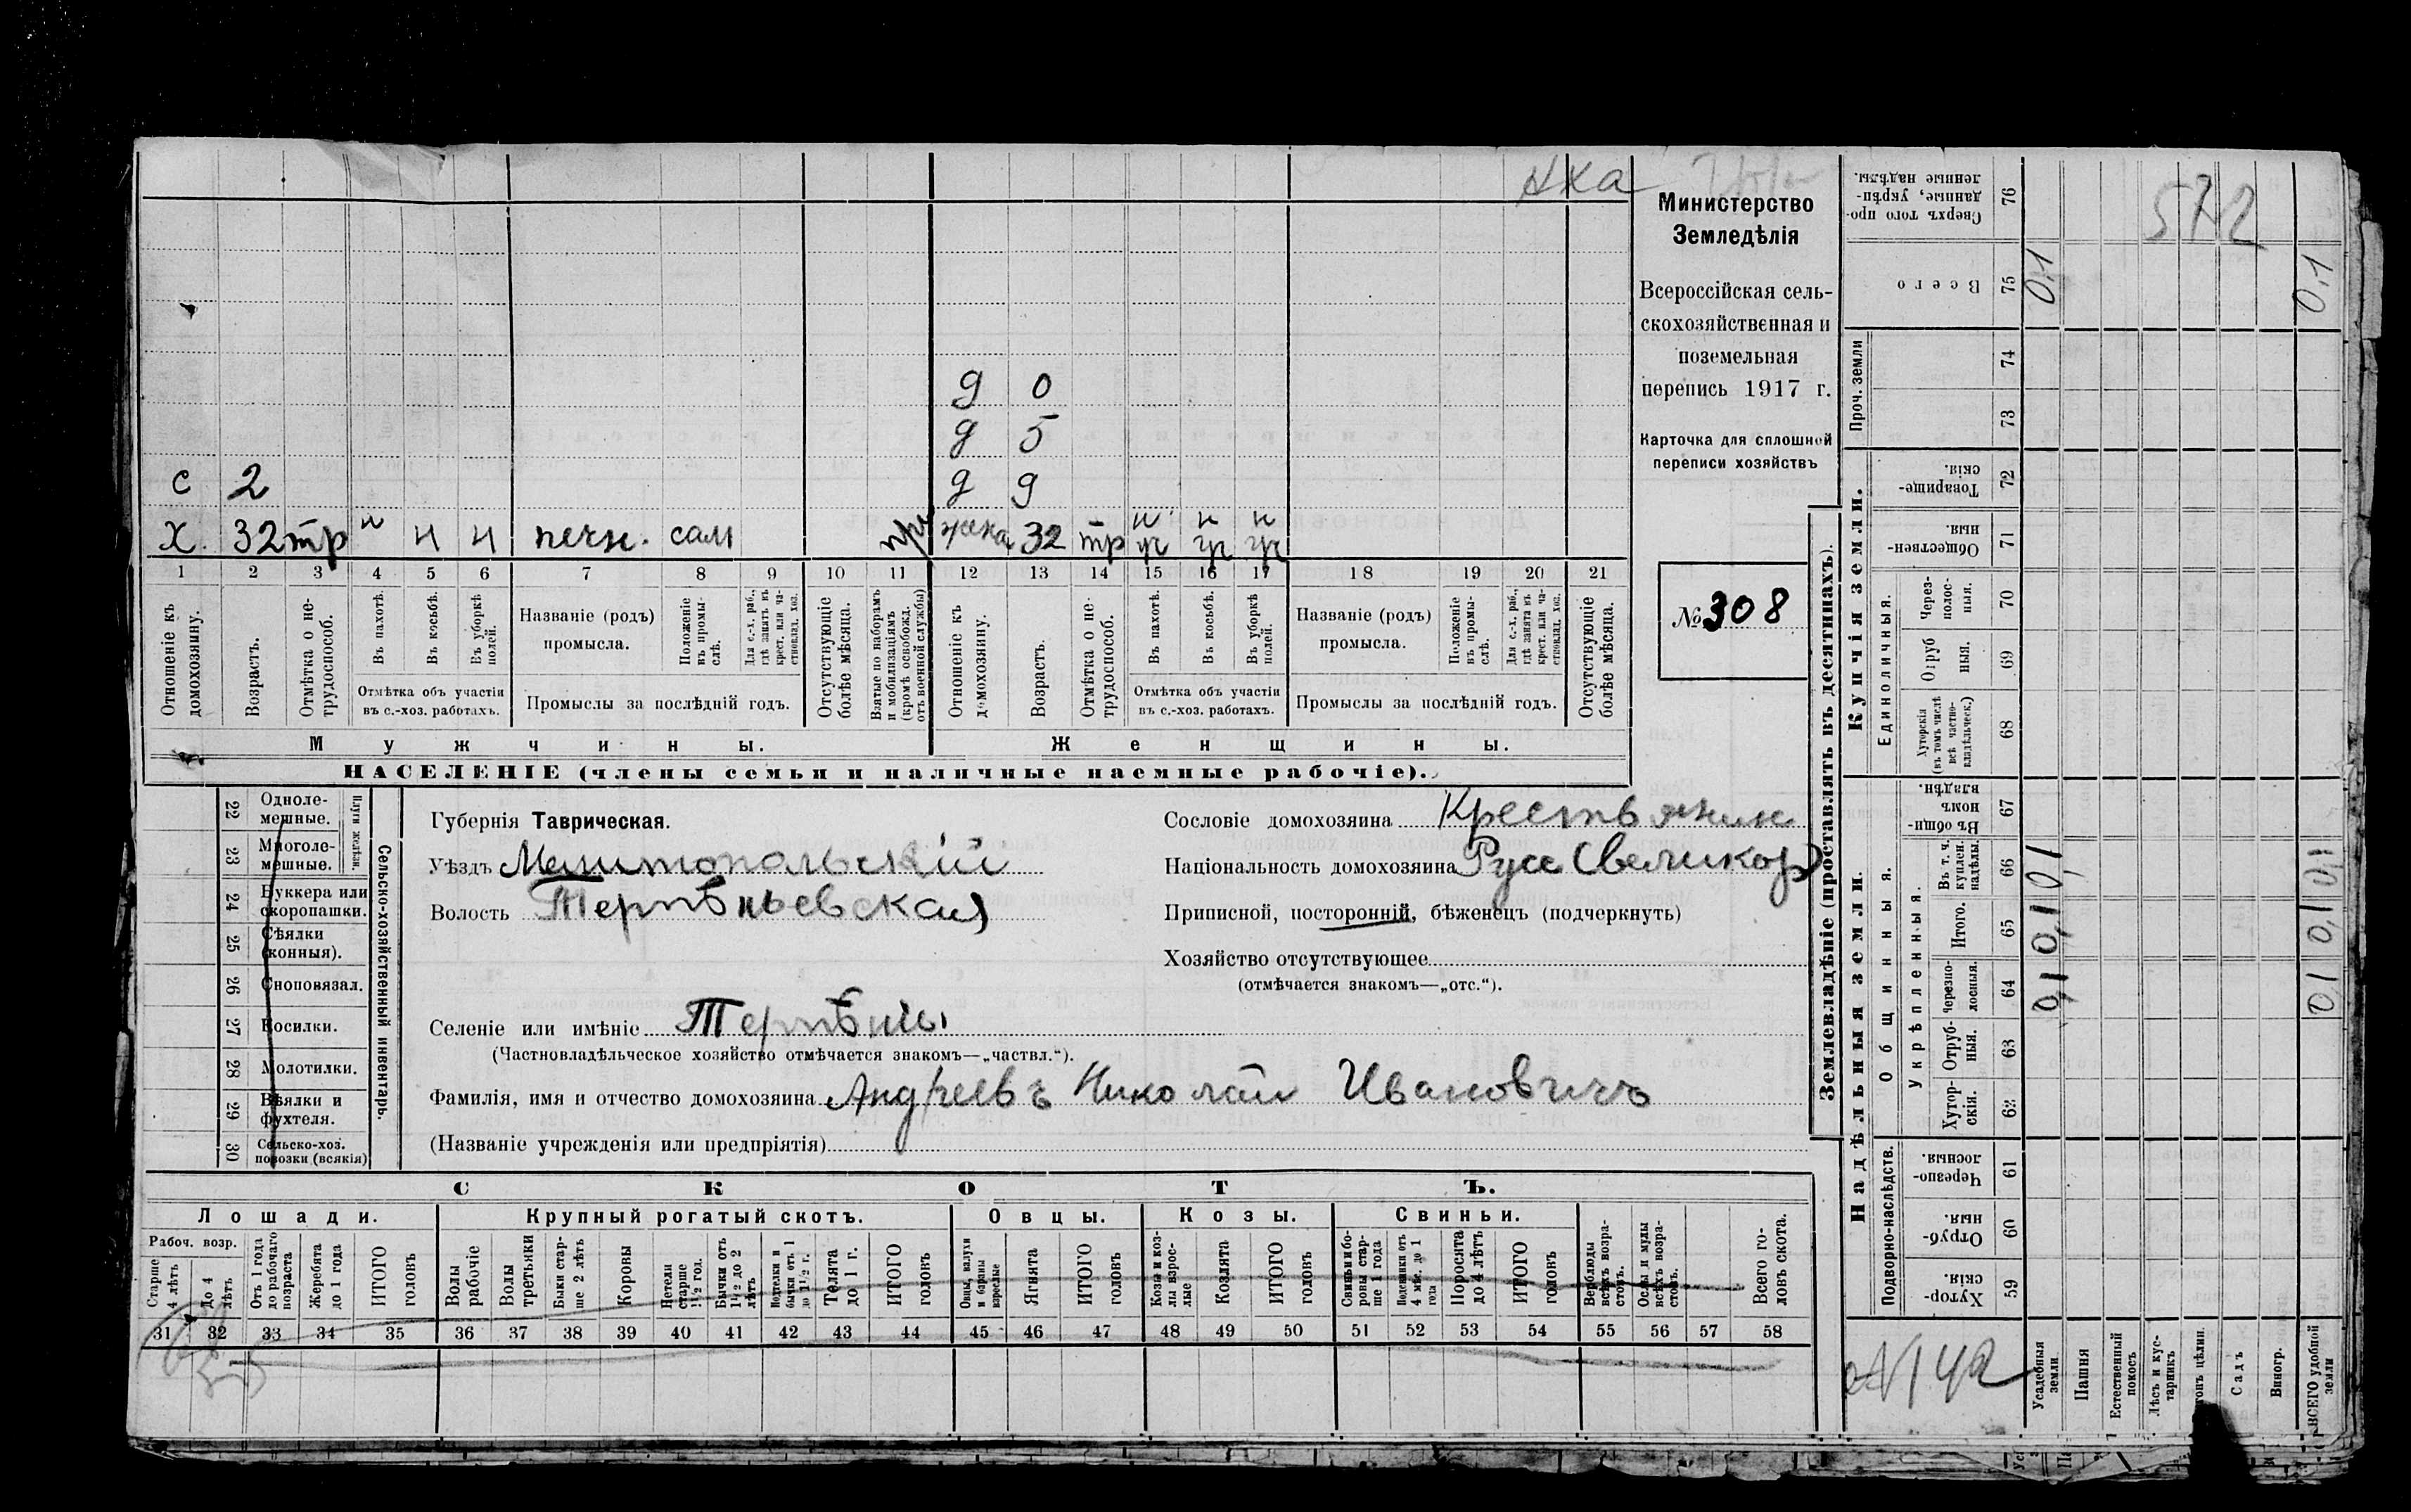 572
Министерство
Земледѣлія
Всероссійская сель-
скохозяйственная и
поземельная
перепись 1917 г.
Карточка для сплошной
переписи хозяйствъ
№ 308
д 0
д 5
с 2 д 9
х. 32 тр н н н печн. сам жена 32 тр н н н
1 2 3 4 5 6 7 8 9 10 11 12 13 14 15 16 17 18 19 20 21
Отношеніе къ домохозяину.
Возрастъ.
Отмѣтка о не-трудоспособ.
Въ пахотѣ.
Въ косьбѣ.
Въ уборкѣ полей.
Отмѣтка объ участіи
въ с.-хоз. работахъ.
Названіе (родъ)
промысла.
Положеніе въ промы-слѣ.
Для с.-х. раб., гдѣ занятъ въ крест. или ча-стновлад. хоз.
Промыслы за послѣдній годъ.
Отсутствующіе болѣе мѣсяца.
Взятые по наборамъ и мобилизаціямъ (кромѣ освобожд. отъ военной службы)
Отношеніе къ домохозяину.
Возрастъ.
Отмѣтка о не-трудоспособ.
Въ пахотѣ.
Въ косьбѣ.
Въ уборкѣ полей.
Отмѣтка объ участіи
въ с.-хоз. работахъ.
Названіе (родъ)
промысла.
Положеніе въ промы-слѣ.
Для с.-х. раб., гдѣ занята въ крест. или ча-стновлад. хоз.
Промыслы за послѣдній годъ.
Отсутствующіе болѣе мѣсяца.
Мужчины. Женщины.
НАСЕЛЕНІЕ (члены семьи и наличные наемные рабочіе).
Плуги желѣзн.
22 Одноле-мешные.
23 Многоле-мешные.
24 Буккера или скоропашки.
25 Сѣялки (конныя).
26 Сноповязал.
27 Косилки.
28 Молотилки.
29 Вѣялки и фухтеля.
30 Сельско-хоз. повозки (всякія)
Сельско-хозяйственный инвентарь.
Губернія Таврическая.
Уѣздъ Мелитопольскій
Волость Терпѣньевская
Селеніе или имѣніе Терпѣнье
(Частновладѣльческое хозяйство отмѣчается знакомъ—„частвл.“).
Фамилія, имя и отчество домохозяина Андреевъ Николай Ивановичъ
(Названіе учрежденія или предпріятія)
Сословіе домохозяина Крестьянин
Національность домохозяина Русс (великор)
Приписной, посторонній, бѣженецъ (подчеркнуть)
Хозяйство отсутствующее
(отмѣчается знакомъ—„отс.“).
СКОТЪ.
Лошади. Крупный рогатый скотъ. Овцы. Козы. Свиньи.
Рабоч. возр.
Старше 4 лѣтъ
До 4 лѣтъ
Отъ 1 года до рабочаго возраста
Жеребята до 1 года
ИТОГО головъ
Волы рабочіе
Волы третьяки
Быки стар-ше 2 лѣтъ
Коровы
Нетели старше 1½ год.
Бычки отъ 1½ до 2 лѣтъ
Подтелки и бычки отъ 1 до 1½ г.
Телята до 1 г.
ИТОГО головъ
Овцы, валухи и бараны взрослые
Ягнята
ИТОГО головъ
Козы и коз-лы взрос-лые
Козлята
ИТОГО головъ
Свиньи и бо-ровы стар-ше 1 года
Подсвинки отъ 4 мѣс. до 1 года
Поросята до 4 лѣтъ
ИТОГО головъ
Верблюды всѣхъ возра-стовъ.
Ослы и мулы всѣхъ возра-стовъ.
Всего го-ловъ скота.
31 32 33 34 35 36 37 38 39 40 41 42 43 44 45 46 47 48 49 50 51 52 53 54 55 56 57 58
Землевладѣніе (проставлять въ десятинахъ).
Сверхъ того про-данные, укрѣп-ленные надѣлы. 76
Всего 75 0,1 0,1
Проч. земли 74
73
Купчія земли.
Товарище-скія. 72
Обществен-ныя. 71
Единоличныя.
Через-полос-ныя. 70
Отруб-ныя. 69
Хуторскія (въ томъ числѣ всѣ частно-владѣльческ.) 68
Надѣльныя земли.
Общинныя.
Въ общин-номъ владѣн. 67
Укрѣпленныя.
Въ т. ч. куплен. надѣлы. 66 0,1 0,1
Итого. 65 0,1 0,1
Черезпо-лосныя. 64 0,1 0,1
Отруб-ныя. 63
Хутор-скія. 62
Подворно-наслѣдств.
Черезпо-лосныя. 61
Отруб-ныя. 60
Хутор-скія. 59
№ 142
Усадебныя земли
Пашня
Естественный покосъ
Лѣсъ и кус-тарникъ
Садъ
Виногр.
ВСЕГО удобной земли